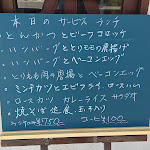 本日のサービスランチ
とんかつとビーフコロッケ
ハンバーグととりモモの唐揚げ
ハンバーグとベーコンエッグ
とりもも肉の唐揚とベーコンエッグ
ミンチカツとエビフライ ロースハム
ロースカツ カレーライス サラダ付
焼そば定食 玉子付
¥750 コーヒ¥100